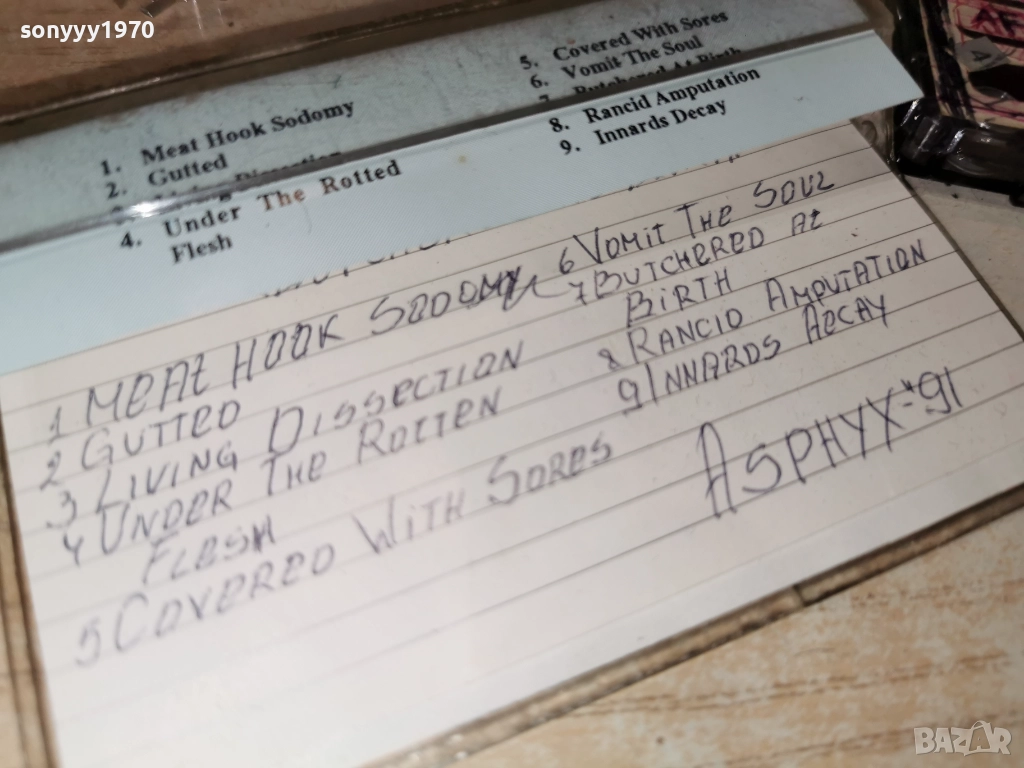 sonyyy1970
1. Meat Hook Sodomy
2. Gutted
4. Under The Rotted
Flesh
5. Covered With Sores
6. Vomit The Soul
7. Butchered At Birth
8. Rancid Amputation
9. Innards Decay
1 MEAt HOOK SODOMY
2 GUTTED
3 LIVING DISSECTION
4 UNDER THE ROTTEN
FLESH
5 COVERED WITH SORES
6 VOMIT THE SOUL
7 BUTCHERED At
BIRTH
8 RANCID AMPUTATION
9 INNARDS DECAY
ASPHYX-'91
BAZAR